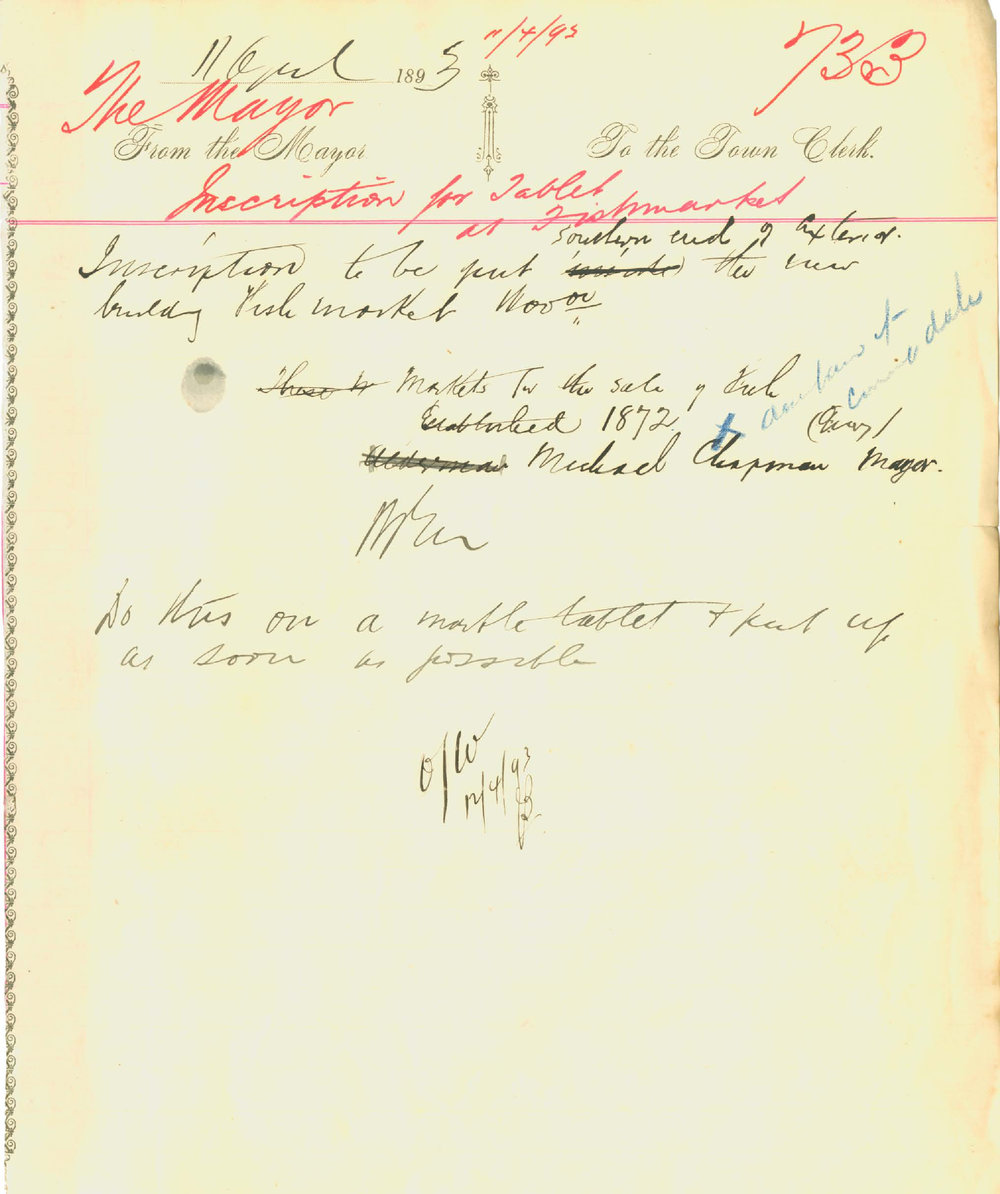 11 April 1893 11/4/93 733
The Mayor
From the Mayor To the Town Clerk.
Inscription for Tablet
at Fishmarket
Southern end of exterior.
Inscription to be put inside the new
building Fish market Woo oo
These Markets for the sale of Fish
Established 1872
Alderman Michael Chapman Mayor.
Do this on a marble tablet & put up
as soon as possible
12/4/93